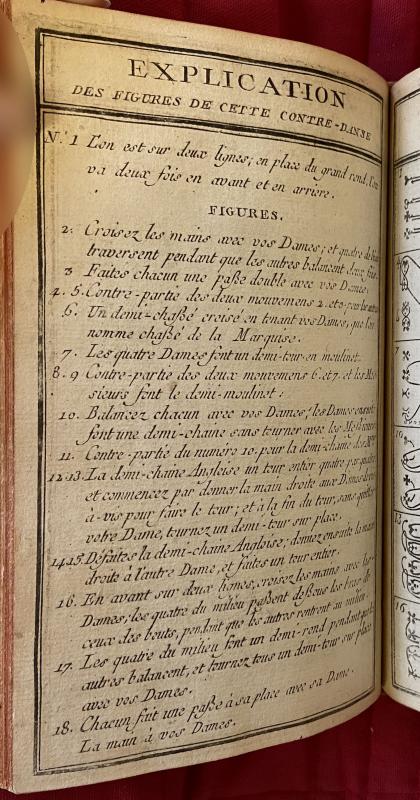 EXPLICATION
DES FIGURES DE CETTE CONTRE-DANSE
N.º 1 L'on est sur deux lignes; en place du grand rond, l'on
va deux fois en avant et en arriere.
FIGURES.
2. Croisez les mains avec vos Dames; et quatre de
traversent pendant que les autres balancent deux fois.
3 Faites chacun une paße double avec vos Dames.
4. 5. Contre-partie des deux mouvemens 2. et 3. pour les autres
6. Un demi-chaßé croisé en tenant vos Dames, que l'on
nomme chaßé de la Marquise.
7. Les quatre Dames font un demi-tour en moulinet.
8. 9 Contre-partie des deux mouvemens 6. et 7. et les Mes
sieurs font le demi-moulinet:
10. Balancez chacun avec vos Dames; les Dames ensuite
font une demi-chaine sans tourner avec les Messieurs
11. Contre-partie du numero 10. pour la demi-chaine des Mrs
12. 13. La demi-chaine Angloise un tour entier quatre par quatre
et commencez par donner la main droite aux Dames
à-vis pour faire le tour; et à la fin du tour, sans quitter
votre Dame, tournez un demi-tour sur place.
14. 15. Défaites la demi-chaine Angloise; donnez ensuite la main
droite à l'autre Dame, et faites un tour entier.
16. En avant sur deux lignes, croisez les mains avec les
Dames; les quatre du milieu paßent deßous les bras de
ceux des bouts, pendant que les autres rentrent au milieu.
17. Les quatre du milieu font un demi-rond pendant que les
autres balancent, et tournez tous un demi-tour sur place
avec vos Dames.
18. Chacun fait une paße à sa place avec sa Dame.
La main à vos Dames.